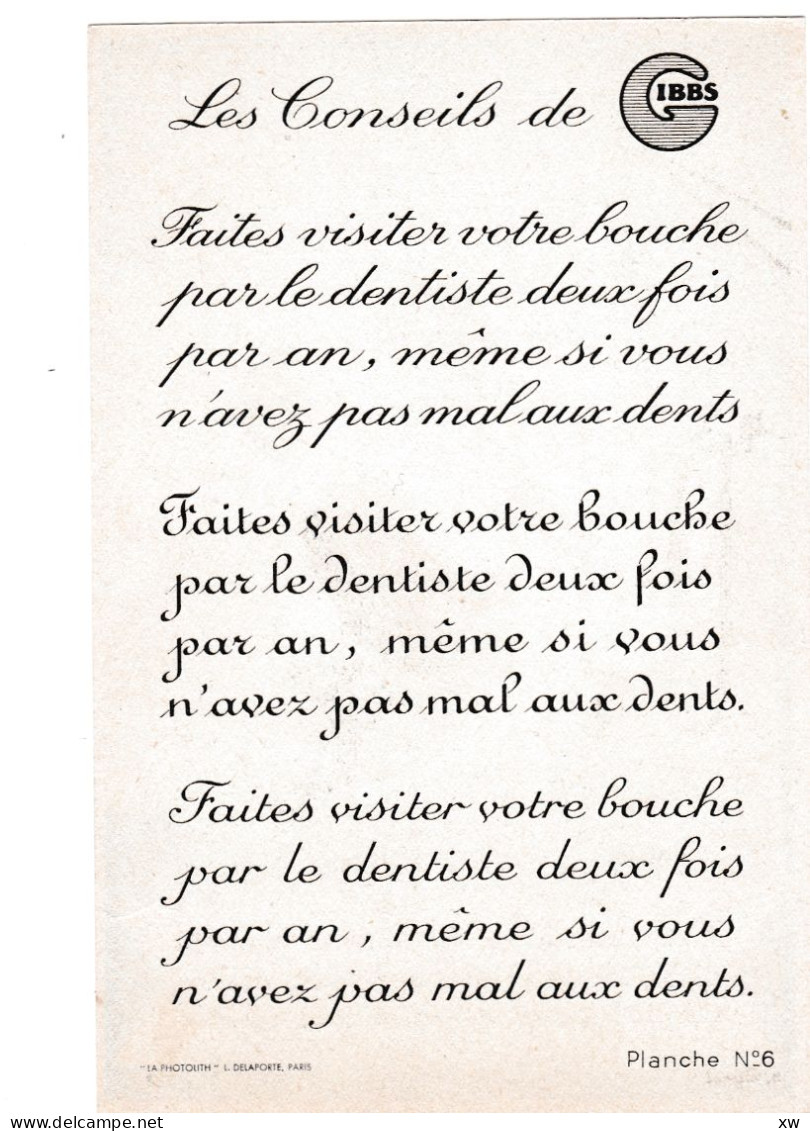 Les Conseils de GIBBS
Faites visiter votre bouche
par le dentiste deux fois
par an, même si vous
n'avez pas mal aux dents
Faites visiter votre bouche
par le dentiste deux fois
par an, même si vous
n'avez pas mal aux dents.
Faites visiter votre bouche
par le dentiste deux fois
par an, même si vous
n'avez pas mal aux dents.
"LA PHOTOLITH" L. DELAPORTE, PARIS
Planche Nº6
delcampe.net
xw